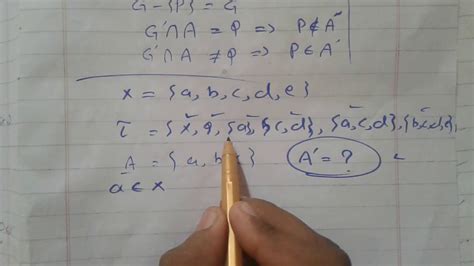 G - {P} = G
G'∩A = φ => P∉A'
G'∩A ≠ φ => P∈A'
x = {a,b,c,d,e}
τ = {x,φ,{a},{c,d},{a,c,d},{b,c,d,e}
A = {a,b, } A' = ?
a ∈ x